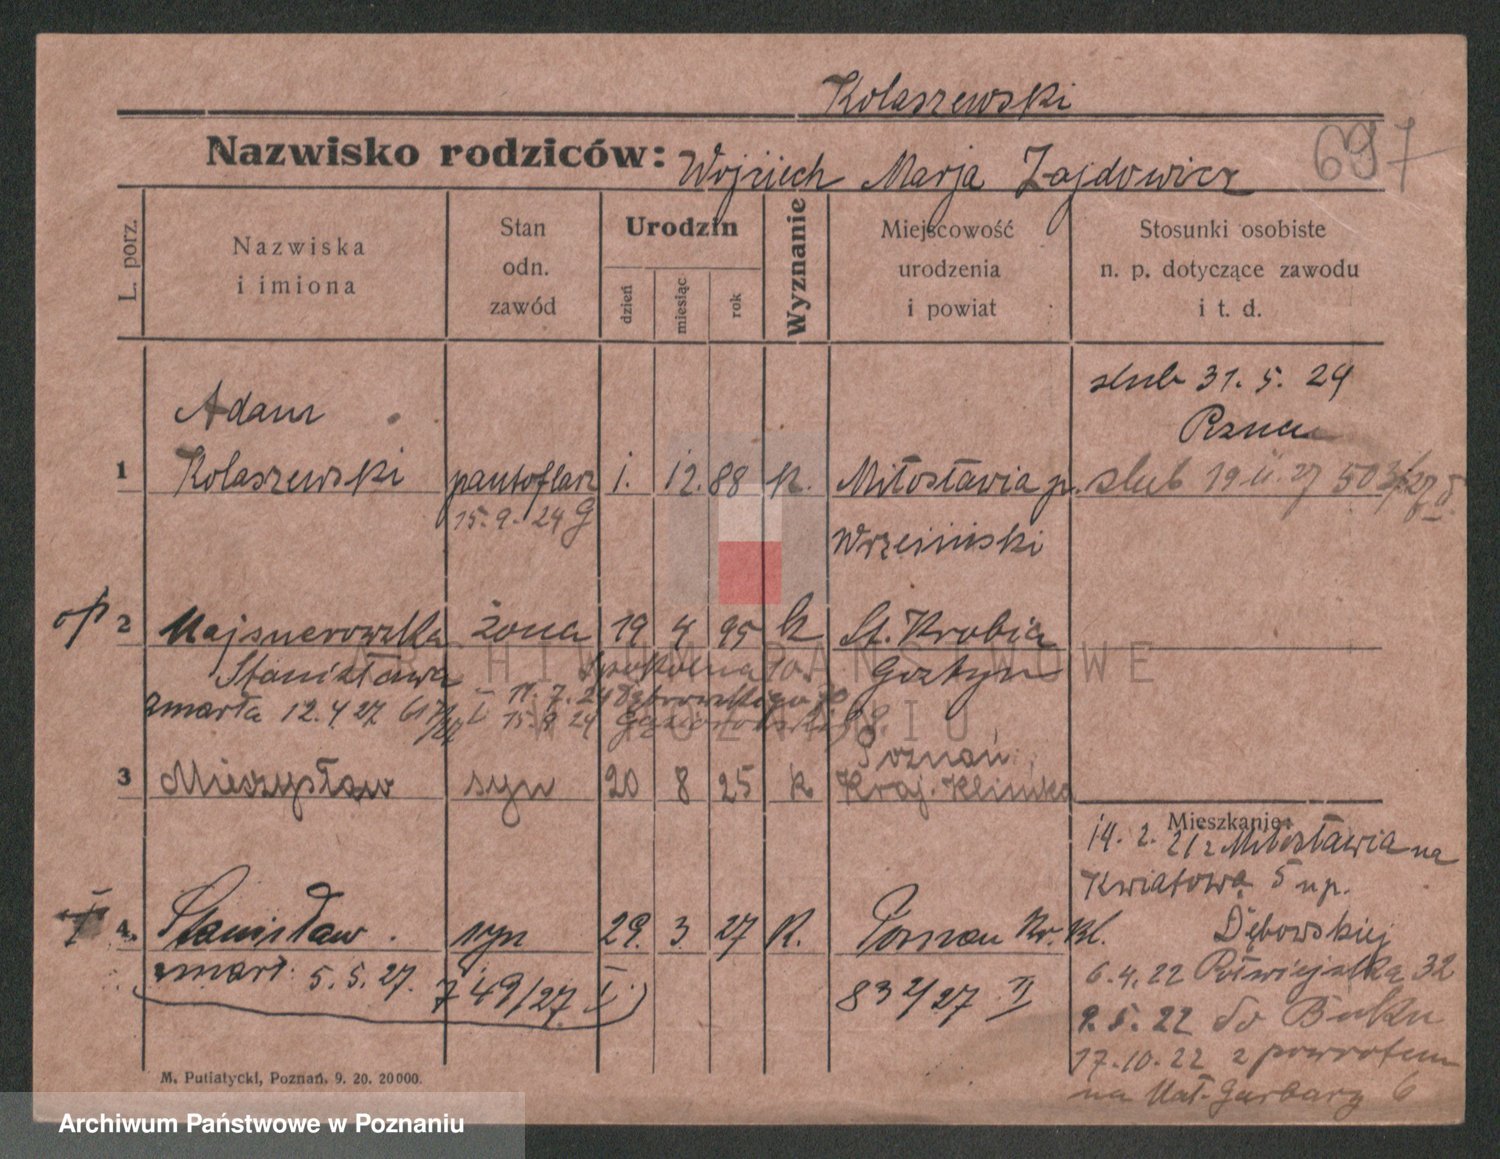 Kolaszewski
Nazwisko rodziców: Wojciech Marja Zajdowicz
697
L. porz.
Nazwiska i imiona
Stan odn. zawód
Urodzin
dzień
miesiąc
rok
Wyznanie
Miejscowość urodzenia i powiat
Stosunki osobiste n. p. dotyczące zawodu i t. d.
slub 31. 5. 24
Pznu
Adam
1 Kolaszewski pantoflarz 1. 12. 88 k. Miłosławia p. slub 19 II. 27 503/27 II
15. 9. 24 G
Wrzesiński
op 2 Majsnerowska żona 19 4 95 k St. Krobia
Stanisława Gostyn
zmarła 12. 4 27 617/27 I 11. 7. 24 Dąbrowskiego
15. 9 24
Poznań
3 Mieczysław syn 20 8 25 k Kraj. Klinika
Mieszkanie:
14. 2. 21 z Miłosławia na
Kwiatową 5 u p.
Dębowskiej
4. Stanisław syn 29. 3. 27 k. Poznan Kr. Kl.
zmarł 5. 5. 27. 749/27 I. 832/27 II
6. 4. 22 Półwiejska 32
9. 5. 22 do Buku
17. 10. 22 z powrotem
na Mał. Garbary 6
M. Putiatycki, Poznań, 9. 20. 20000.
ARCHIWUM PAŃSTWOWE
W POZNANIU
Archiwum Państwowe w Poznaniu